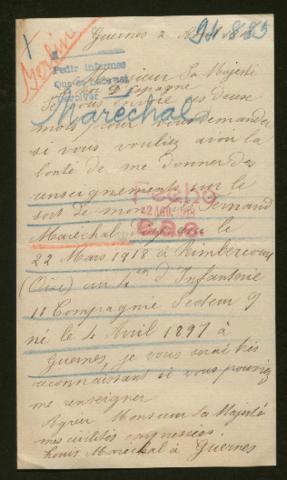 94.885
Guernes 2
Pedir informes
Monsieur Sa Majesté
d'Espagne
Je vous ces deux
Maréchal
mots pour vous demander
si vous vouliez avoir la
bonté de me donner des
renseignements sur le
sort de mon Fernand
Maréchal disparu le
22 Mars 1918 à Rimbercourt
(Oise) au 4em d'Infanterie
11 Compagnie Secteur 9
né le 4 Avril 1897 à
Guernes, je vous serai très
reconnaissant si vous pouviez
me renseigner
Agréer Monsieur Sa Majesté
mes civilités empressées.
Louis Maréchal à Guernes